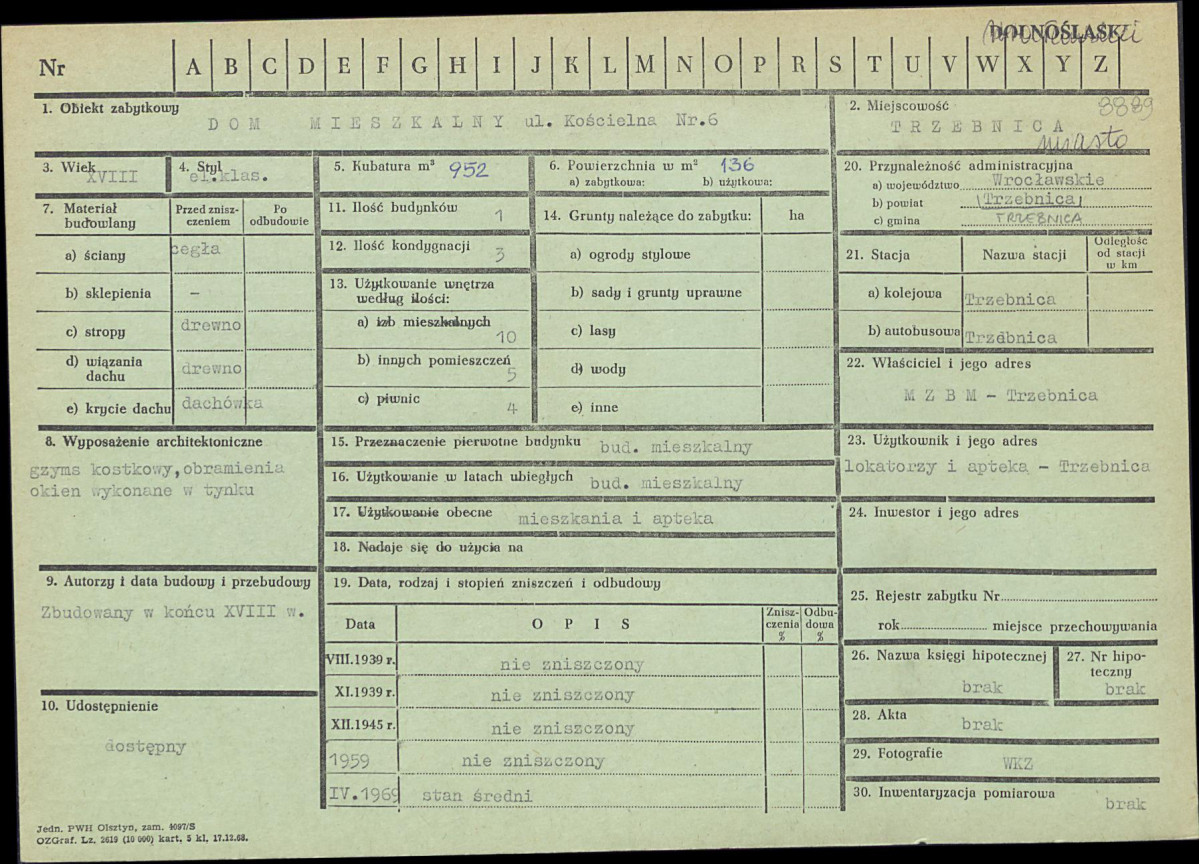 DOLNOŚLĄSKI
Nr A B C D E F G H I J K L M N O P R S T U V W X Y Z
1. Obiekt zabytkowy
DOM MIESZKALNY ul. Kościelna Nr.6
2. Miejscowość 3889
TRZEBNICA
miasto
3. Wiek
XVIII
4. Styl
el.klas.
5. Kubatura m³ 952
6. Powierzchnia w m² 136
a) zabytkowa: b) użytkowa:
7. Materiał budowlany
Przed zniszczeniem
Po odbudowie
a) ściany cegła
b) sklepienia –
c) stropy drewno
d) wiązania dachu drewno
e) krycie dachu dachówka
8. Wyposażenie architektoniczne
gzyms kostkowy, obramienia
okien wykonane w tynku
9. Autorzy i data budowy i przebudowy
Zbudowany w końcu XVIII w.
10. Udostępnienie
dostępny
11. Ilość budynków 1
12. Ilość kondygnacji 3
13. Użytkowanie wnętrza
według ilości:
a) izb mieszkalnych
10
b) innych pomieszczeń
5
c) piwnic 4
14. Grunty należące do zabytku: ha
a) ogrody stylowe
b) sady i grunty uprawne
c) lasy
d) wody
e) inne
15. Przeznaczenie pierwotne budynku bud. mieszkalny
16. Użytkowanie w latach ubiegłych bud. mieszkalny
17. Użytkowanie obecne mieszkania i apteka
18. Nadaje się do użycia na
19. Data, rodzaj i stopień zniszczeń i odbudowy
Data OPIS Zniszczenia % Odbudowa %
VIII.1939 r. nie zniszczony
XI.1939 r. nie zniszczony
XII.1945 r. nie zniszczony
1959 nie zniszczony
IV.1969 stan średni
20. Przynależność administracyjna
a) województwo Wrocławskie
b) powiat Trzebnica
c) gmina TRZEBNICA
21. Stacja Nazwa stacji Odległość od stacji w km
a) kolejowa Trzebnica
b) autobusowa Trzebnica
22. Właściciel i jego adres
M Z B M - Trzebnica
23. Użytkownik i jego adres
lokatorzy i apteka - Trzebnica
24. Inwestor i jego adres
25. Rejestr zabytku Nr
rok miejsce przechowywania
26. Nazwa księgi hipotecznej
brak
27. Nr hipoteczny
brak
28. Akta
brak
29. Fotografie
WKZ
30. Inwentaryzacja pomiarowa
brak
Jedn. PWH Olsztyn, zam. 4097/S
OZGraf. Lz. 2619 (10 000) kart. 5 kl. 17.12.68.